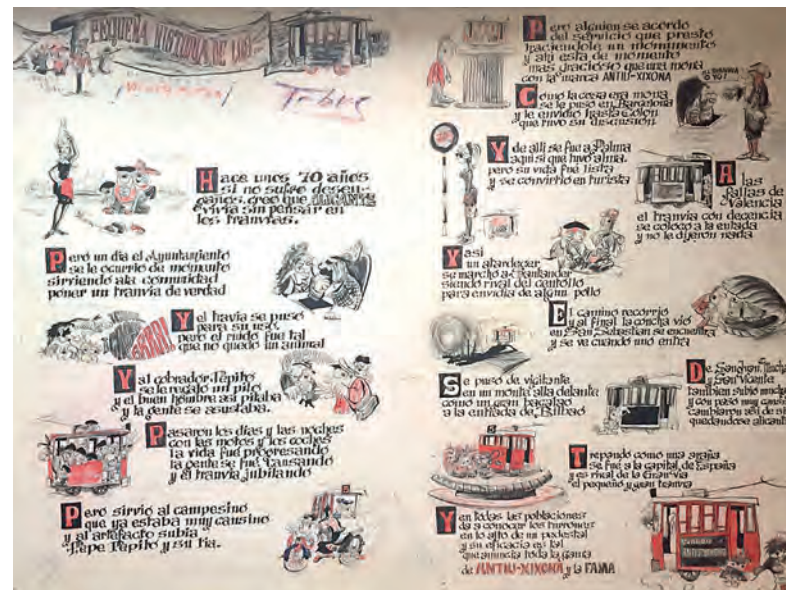 PEQUEÑA HISTORIA DE LOS
Hace unos 70 años
si no sufro desen-
gaños, creo que ALICANTE
vivía sin pensar en
los tranvias.
Pero un dia el Ayuntamiento
se le ocurrio de momento
sirviendo a la comunidad
poner un tranvia de verdad
Y el travia se puso
para su uso,
pero el ruido fue tal
que no quedo un animal
Y al cobrador Pepito
se le regalo un pito
y el buen hombre asi pitaba
y la gente se asustaba.
Pasaron los dias y las noches
con las motos y los coches
la vida fue progresando
la gente se fue causando
y el tranvia jubilando
Pero sirvio al campesino
que ya estaba muy cansino
y al artefacto subia
Pepe Pepito y su tia.
Pero alguien se acordo
del servicio que presto
haciendole un monumento
y ahi esta de momento
mas gracioso que una mona
con la marca ANTIU-XIXONA
Como la cosa era mona
se le puso en Barcelona
y le envidio hasta Colon
que tuvo su discusión
O YO!
Y de alli se fue a Palma
aqui si que tuvo alma.
pero su vida fue lista
y se convirtio en turista
A las
Fallas de
Valencia
el tranvia con decencia
se coloco a la entrada
y no le dijeron nada
Y asi
un atardecer
se marcho a Santander
siendo rival del centollo
para envidia de algun pollo
El camino recorrio
y al final la concha vio
en San Sebastian se encuentra
y se ve cuando uno entra
Se puso de vigilante
en un monta alla delante
como un gran bacalao
a la entrada de Bilbao
De
y San Vicente
tambien subio
y con paso muy
cambiaron asi de
quedandose
Trepando como una araña
se fue a la capital de España
y es rival de la Gran via
el pequeño y gran tranvia
Y en todas las poblaciones
da a conocer los turrones
en lo alto de un pedestal
y su eficacia es tal
que anuncia toda la gama
de ANTIU-XIXONA y la FAMA